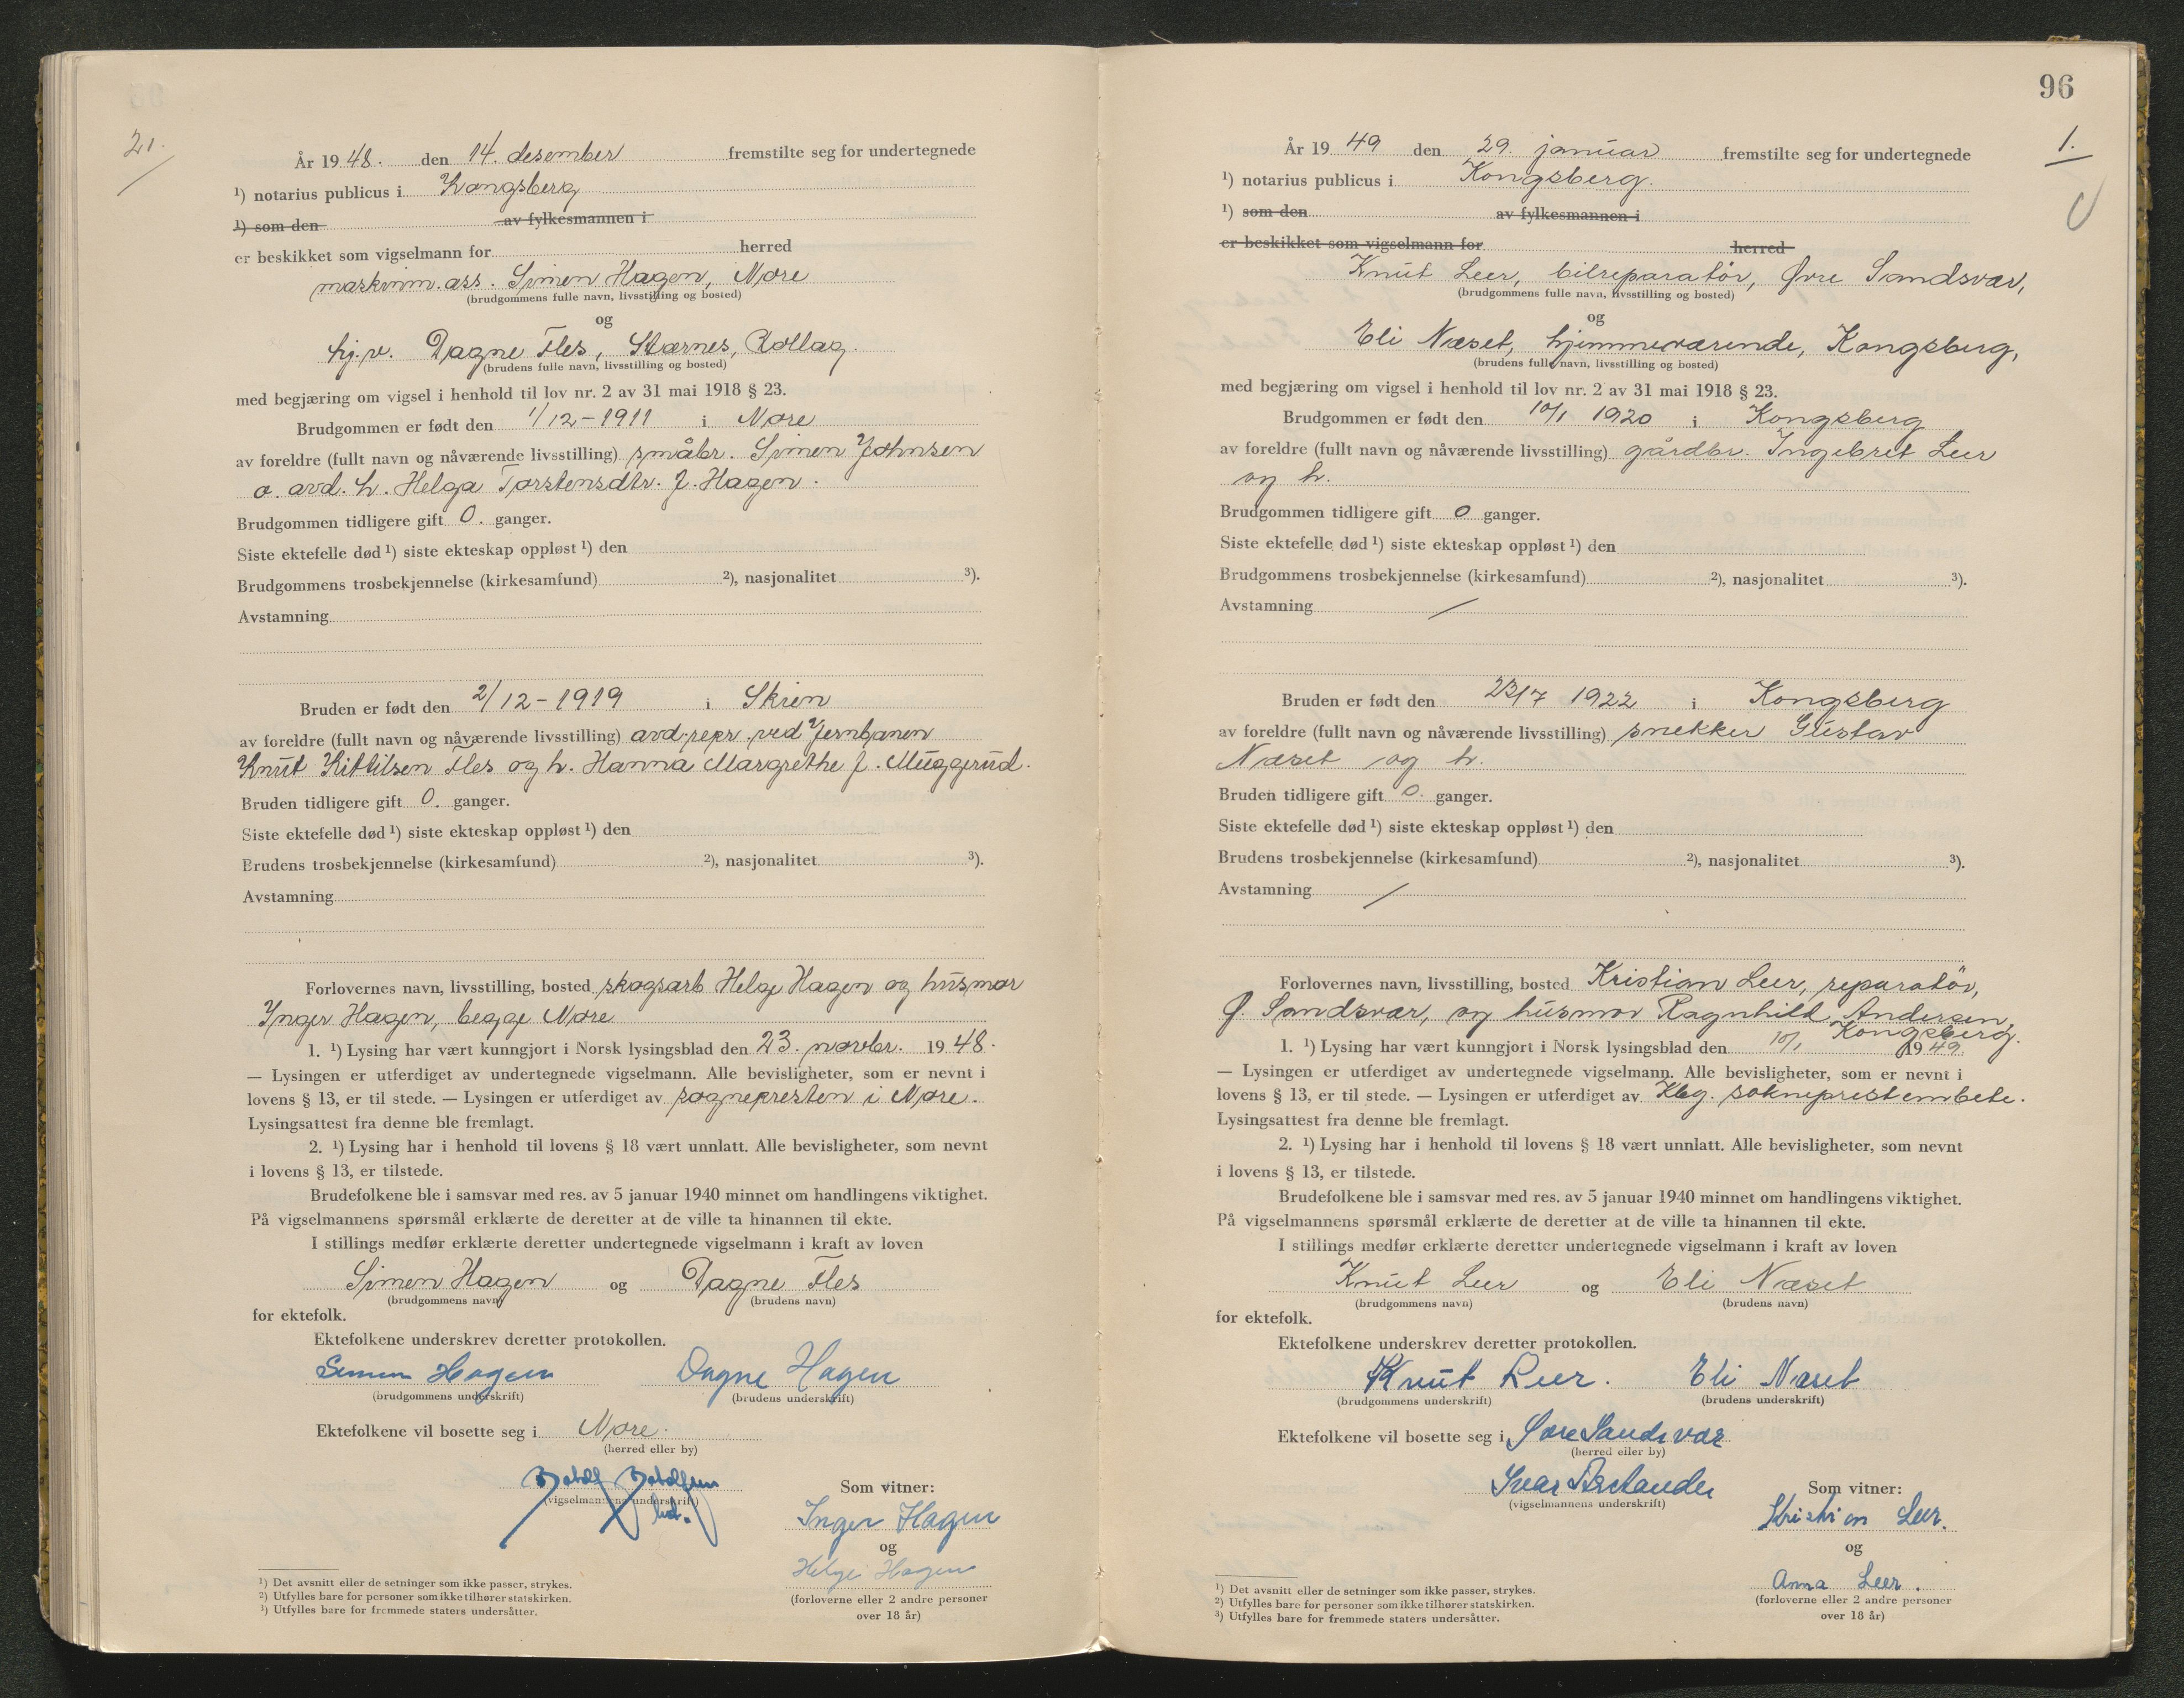 21.
År 1948. den 14. desember fremstilte seg for undertegnede
¹) notarius publicus i Kongsberg
¹) som den av fylkesmannen i
er beskikket som vigselmann for herred
maskinm. ass. Simen Hagen, Nore
(brudgommens fulle navn, livsstilling og bosted)
og
hj.v. Dagne Fles, Stærnes, Rollag.
(brudens fulle navn, livsstilling og bosted)
med begjæring om vigsel i henhold til lov nr. 2 av 31 mai 1918 § 23.
Brudgommen er født den 1/12-1911 i Nore
av foreldre (fullt navn og nåværende livsstilling) småbr. Simen Johnsen
o. avd. h. Helga Torstensdtr. f. Hagen.
Brudgommen tidligere gift 0. ganger.
Siste ektefelle død ¹) siste ekteskap oppløst ¹) den
Brudgommens trosbekjennelse (kirkesamfund) ²), nasjonalitet ³).
Avstamning
Bruden er født den 2/12-1919 i Skien
av foreldre (fullt navn og nåværende livsstilling) avd. repr. ved Jernbanen
Knut Kittilsen Fles og h. Hanna Margrethe f. Muggerud.
Bruden tidligere gift 0. ganger.
Siste ektefelle død ¹) siste ekteskap oppløst ¹) den
Brudens trosbekjennelse (kirkesamfund) ²), nasjonalitet ³).
Avstamning
Forlovernes navn, livsstilling, bosted skogsarb Helge Hagen og husmor
Inger Hagen, begge Nore
1. ¹) Lysing har vært kunngjort i Norsk lysingsblad den 23. novbr. 1948.
— Lysingen er utferdiget av undertegnede vigselmann. Alle bevisligheter, som er nevnt i
lovens § 13, er til stede. — Lysingen er utferdiget av sognepresten i Nore.
Lysingsattest fra denne ble fremlagt.
2. ¹) Lysing har i henhold til lovens § 18 vært unnlatt. Alle bevisligheter, som nevnt
i lovens § 13, er tilstede.
Brudefolkene ble i samsvar med res. av 5 januar 1940 minnet om handlingens viktighet.
På vigselmannens spørsmål erklærte de deretter at de ville ta hinannen til ekte.
I stillings medfør erklærte deretter undertegnede vigselmann i kraft av loven
Simen Hagen og Dagne Fles
(brudgommens navn) (brudens navn)
for ektefolk.
Ektefolkene underskrev deretter protokollen.
Simen Hagen Dagne Hagen
(brudgommens underskrift) (brudens underskrift)
Ektefolkene vil bosette seg i Nore.
(herred eller by)
(vigselmannens underskrift)
Som vitner:
Inger Hagen
og
Helge Hagen
(forloverne eller 2 andre personer
over 18 år)
¹) Det avsnitt eller de setninger som ikke passer, strykes.
²) Utfylles bare for personer som ikke tilhører statskirken.
³) Utfylles bare for fremmede staters undersåtter.
96
1.
År 1949 den 29. januar fremstilte seg for undertegnede
¹) notarius publicus i Kongsberg.
¹) som den av fylkesmannen i
er beskikket som vigselmann for herred
Knut Leer, bilreparatør, Øvre Sandsvær,
(brudgommens fulle navn, livsstilling og bosted)
og
Eli Næset, hjemmeværende, Kongsberg,
(brudens fulle navn, livsstilling og bosted)
med begjæring om vigsel i henhold til lov nr. 2 av 31 mai 1918 § 23.
Brudgommen er født den 10/1 1920 i Kongsberg
av foreldre (fullt navn og nåværende livsstilling) gårdbr. Ingebret Leer
og h.
Brudgommen tidligere gift 0 ganger.
Siste ektefelle død ¹) siste ekteskap oppløst ¹) den
Brudgommens trosbekjennelse (kirkesamfund) ²), nasjonalitet ³).
Avstamning /
Bruden er født den 23/7 1922 i Kongsberg
av foreldre (fullt navn og nåværende livsstilling) snekker Gustav
Næset og h.
Bruden tidligere gift 0. ganger.
Siste ektefelle død ¹) siste ekteskap oppløst ¹) den
Brudens trosbekjennelse (kirkesamfund) ²), nasjonalitet ³).
Avstamning /
Forlovernes navn, livsstilling, bosted Kristian Leer, reparatør,
Ø. Sandsvær, og husmor Ragnhild Andersen,
Kongsberg.
1. ¹) Lysing har vært kunngjort i Norsk lysingsblad den 10/1 1949.
— Lysingen er utferdiget av undertegnede vigselmann. Alle bevisligheter, som er nevnt i
lovens § 13, er til stede. — Lysingen er utferdiget av Kbg. sokneprestembete.
Lysingsattest fra denne ble fremlagt.
2. ¹) Lysing har i henhold til lovens § 18 vært unnlatt. Alle bevisligheter, som nevnt
i lovens § 13, er tilstede.
Brudefolkene ble i samsvar med res. av 5 januar 1940 minnet om handlingens viktighet.
På vigselmannens spørsmål erklærte de deretter at de ville ta hinannen til ekte.
I stillings medfør erklærte deretter undertegnede vigselmann i kraft av loven
Knut Leer og Eli Næset
(brudgommens navn) (brudens navn)
for ektefolk.
Ektefolkene underskrev deretter protokollen.
Knut Leer. Eli Næset
(brudgommens underskrift) (brudens underskrift)
Ektefolkene vil bosette seg i Øvre Sandsvær
(herred eller by)
(vigselmannens underskrift)
Som vitner:
Kristian Leer.
og
Anna Leer.
(forloverne eller 2 andre personer
over 18 år)
¹) Det avsnitt eller de setninger som ikke passer, strykes.
²) Utfylles bare for personer som ikke tilhører statskirken.
³) Utfylles bare for fremmede staters undersåtter.